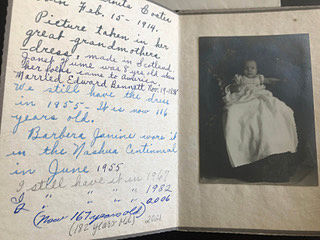 Coates
Born Feb. 15 - 1914.
Picture taken in her
great grandmothers
dress, made in Scotland
Janet Hume was 8 yrs old when
her folks came to America.
Married Edward Bennett Nov. 19 - 1858
We still have the dress
in 1955 - It is now 116
years old.
Barbara Janine wore it
in the Nashua Centennial
in June 1955
I still have it in 1967
I " " " " 1982
I " " " " 2006
(Now 167 years old)
(182 years old) - 2021